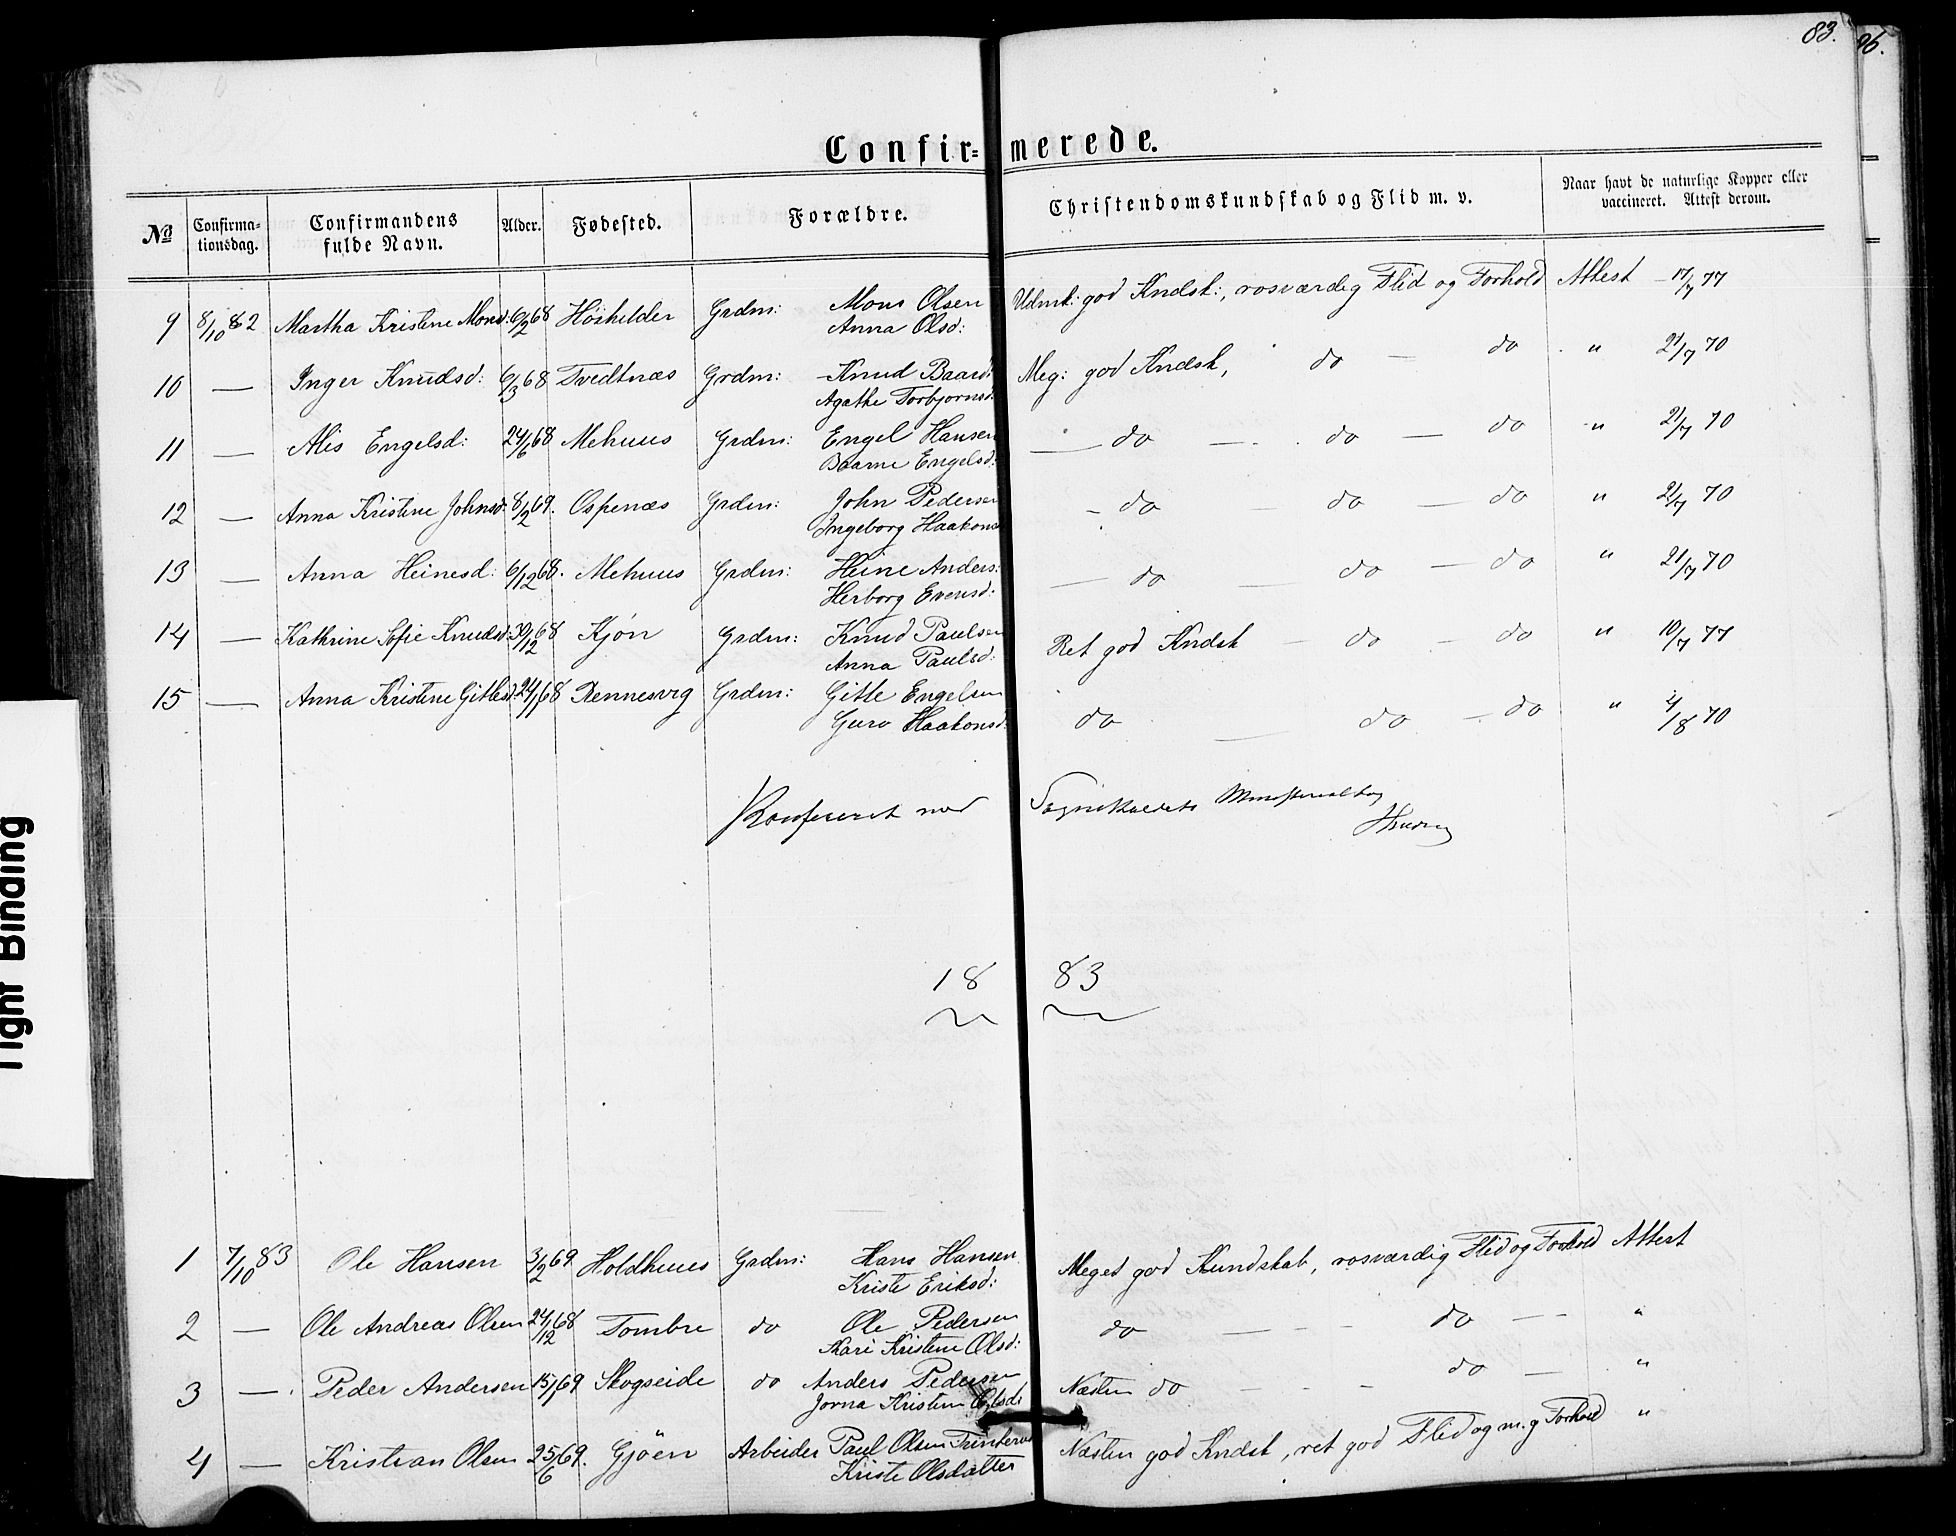 83.
96.
Confir-merede.
No
Confirma-tionsdag.
Confirmandens fulde Navn.
Alder.
Fødested.
Forældre.
Christendomskundskab og Flid m. v.
Naar havt de naturlige Kopper eller vaccineret. Attest derom.
9 8/10 82 Martha Kristine Monsd: 6/2 68 Höshilder Grdm: Mons Olsen Udmk: god Kndsk:, rosværdig Flid og Forhold Attest - 17/7 77
Anna Olsd:
10 — Inger Knudsd: 6/3 68 Tvedtnæs Grdm: Knud Baard: Meg: god Kndsk, do — do " 21/7 70
Agathe Torbjornsd:
11 — Alis Engelsd: 24/6 68 Mehuus Grdm: Engel Hansen — do — do — do " 21/7 70
Baarne Engelsd:
12 — Anna Kristine Johnsd: 8/2 69. Ospenæs Grdm: John Pedersen - do — do — do " 21/7 70
Ingeborg Haakons
13 — Anna Heinesd: 6/12 68. Mehuus Grdm: Heine Anders: — do — do — do " 21/7 70
Herborg Evensd:
14 — Kathrine Sofie Knudsd: 30/12 68 Kjön Grdm: Knud Paulsen Ret god Kndsk — do — do " 10/7 77
Anna Paulsd:
15 — Anna Kristine Gitlesd: 24/1 68 Rennesvig Grdm: Gitle Engelsen do — do — do " 4/18 70
Guro Haakonsd:
Konfereret med Sognekaldets Ministerialbog
18 83
1 7/10 83 Ole Hansen 3/2 69 Holdhuus Grdm: Hans Hansen Meget god Kundskab, rosværdig Flid og Forhold Attest
Kristi Eriksd:
2 — Ole Andreas Olsen 24/12 68 Tombre do Ole Pedersen do — - - do — — "
Kari Kristine Olsd:
3 — Peder Andersen 15/1 69 Skogseide do Anders Pedersen Næsten do — - - do — "
Jorna Kristine Olsd:
4 — Kristian Olsen 25/6 69. Gjöen Arbeider Paul Olsen Næsten god Kndsk, ret god Flid og m. g Forhold "
Kristi Olsdatter
Tight Binding